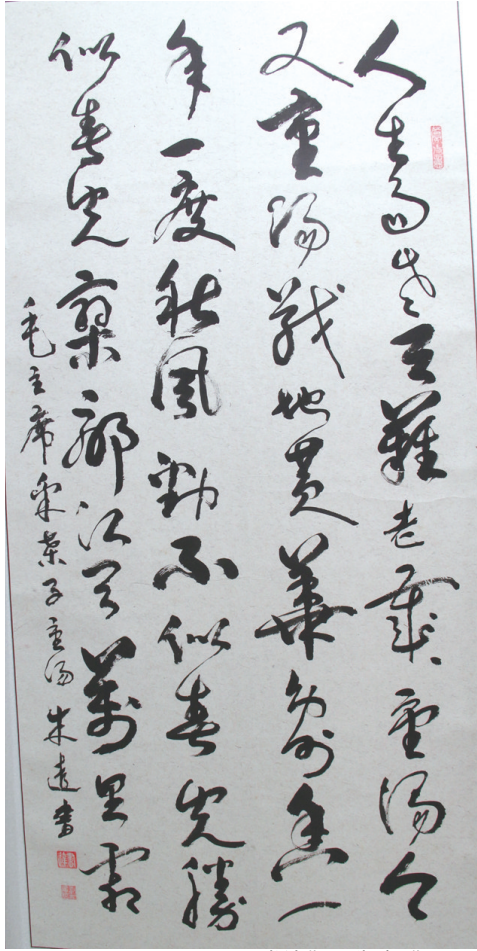 人生易老天難老歲歲重陽今
又重陽戰地黃華分外香一
年一度秋風勁不似春光勝
似春光寥廓江天萬里霜
毛主席采桑子重陽 朱遠書